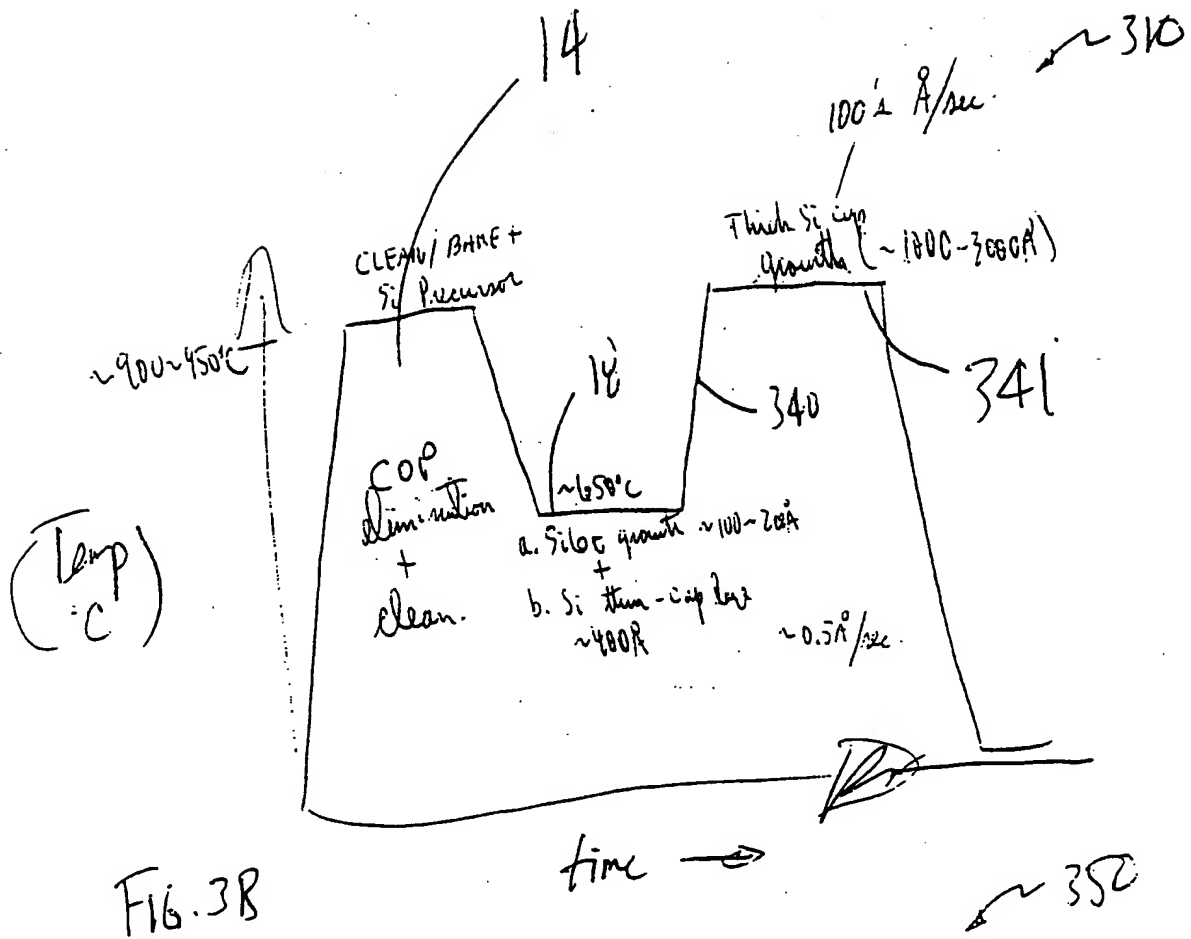 14
~ 310
100's Å/sec.
CLEAN / BAKE +
Si Precursor
Thick Si cap
growth (~1000-3000Å)
~900~950°C
18
340
341
COP
elimination
+
clean.
~650°C
a. SiGe growth ~100~200Å
+
b. Si thin-cap
~400Å
~0.5Å/sec.
(Temp
°C)
time →
FIG. 3B
~ 350